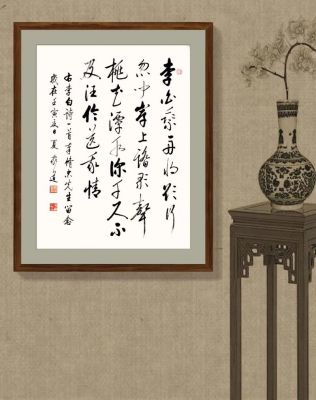 李白乘舟将欲行
忽闻岸上踏歌聲
桃花潭水深千尺不
及汪倫送我情
李白詩一首 先生留念
歲在壬寅 夏